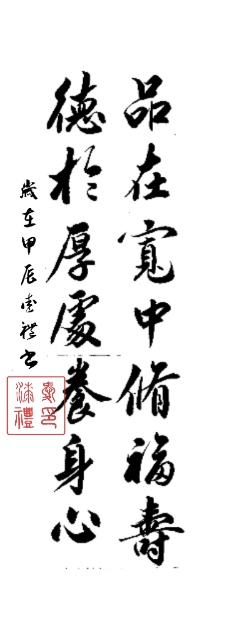 品在寬中脩福壽
德於厚處養身心
歲在甲辰壹禮書